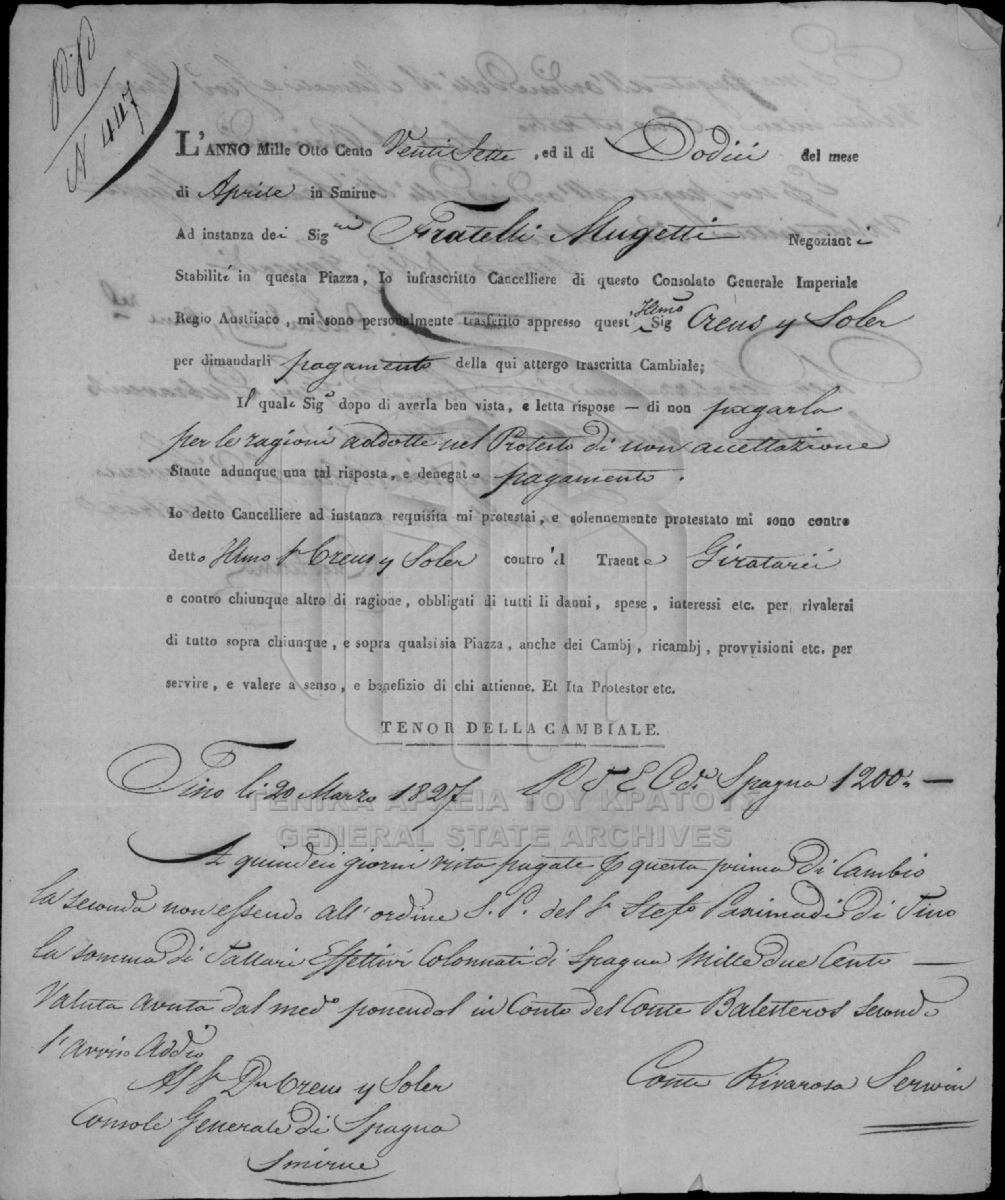 N 447
L'ANNO Mille Otto Cento Venti Sette , ed il di Dodici del mese
di Aprile in Smirne
Ad instanza dei Sigri Fratelli Mugetti Negozianti
Stabiliti in questa Piazza, Io infrascritto Cancelliere di questo Consolato Generale Imperiale
Regio Austriaco, mi sono personalmente trasferito appresso quest' Illmo Sig Creus y Soler
per dimandarli pagamento della qui attergo trascritta Cambiale;
Il quale Sigr dopo di averla ben vista, e letta rispose — di non pagarla
per le ragioni addotte nel Protesto di non accettazione
Stante adunque una tal risposta, e denegato pagamento.
Io detto Cancelliere ad instanza requisita mi protestai, e solennemente protestato mi sono contro
detto Illmo Sr Creus y Soler contro il Traente Giratarii
e contro chiunque altro di ragione, obbligati di tutti li danni, spese, interessi etc. per rivalersi
di tutto sopra chiunque, e sopra qualsisia Piazza, anche dei Cambj, ricambj, provvisioni etc. per
servire, e valere a senso, e benefizio di chi attienne. Et Ita Protestor etc.
TENOR DELLA CAMBIALE.
Tino li 20 Marzo 1827 P T E C di Spagna 1200 —
ΓΕΝΙΚΑ ΑΡΧΕΙΑ ΤΟΥ ΚΡΑΤΟΥΣ
GENERAL STATE ARCHIVES
A quindeci giorni vista pagate p questa prima di Cambio
la seconda non essendo all'ordine S. P. del Sr Stefo Paximadi di Tino
la somma di Tallari Effettivi Colonnati di Spagna Mille due Cento —
Valuta avuta dal medo ponendol in Conto del Conte Balesteros secondo
l'avviso Addio
Al Sr Dn Creus y Soler
Conte Rivarosa Serwin
Console Generale di Spagna
Smirne